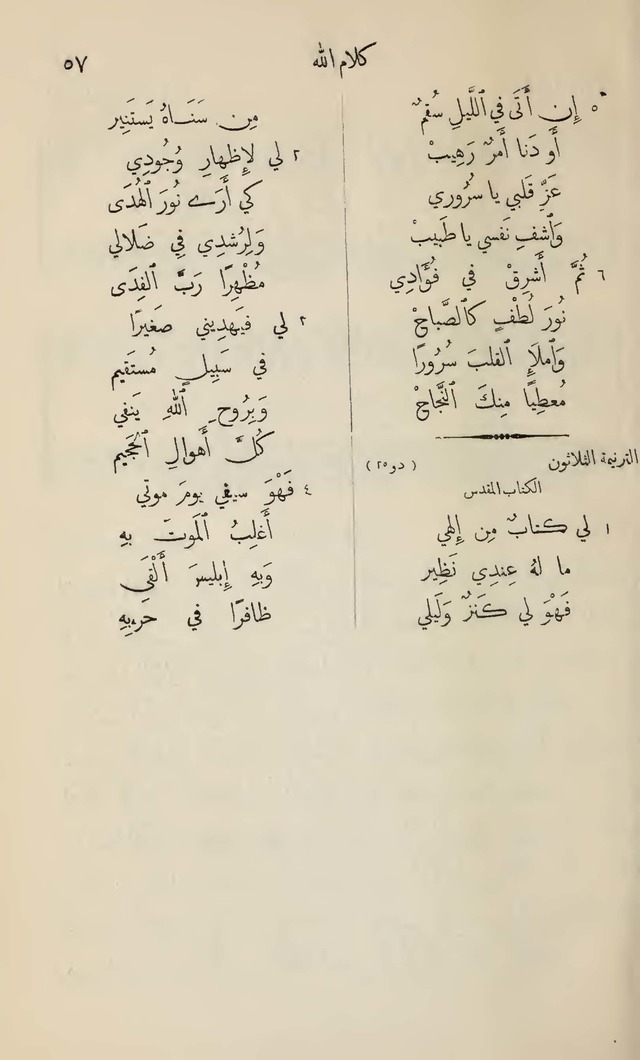 كلام الله
٥٧
٥ إِن أَتَى فِي ٱللَّيلِ سُقمٌ
أَو دَنا أَمرٌ رَهِيبْ
عَزِّ قَلبي يا سرُوري
وَٱشفِ نَفسي يا طَبيبْ
٦ ثُمَّ أَشرِقْ في فُؤَادِي
نُورَ لُطْفٍ كٱلصَّباحْ
وَٱملَإِ القلبَ سُرُورًا
مُعطِيًا مِنكَ ٱلنَّجَاحْ
الترنيمة الثلاثون
(دو ٢٥)
الكتاب المقدس
١ لي كتابٌ مِن إِلهي
ما لهُ عِندِي نَظِير
فَهْوَ لي كَنزٌ وَلَيلي
مِن سَنَاهُ يَستَنِير
٢ لي لإِظهارِ وُجُودِي
كي أَرَى نُورَ ٱلهُدَى
وَلِرُشدِي فِي ضَلالي
مُظْهِرًا رَبَّ الفِدَى
٣ لي فيَهدِيني صَغيرًا
في سَبِيلٍ مُستَقِيم
وَبِرُوحِ ٱللهِ يَنفي
كُلَّ أَهوالِ ٱلجَحِيم
٤ فَهْوَ سيفي يومَ موتي
أَغلِبُ ٱلمَوتَ بهِ
وَبِهِ إِبليسَ أَلْقَى
ظافرًا في حربِهِ